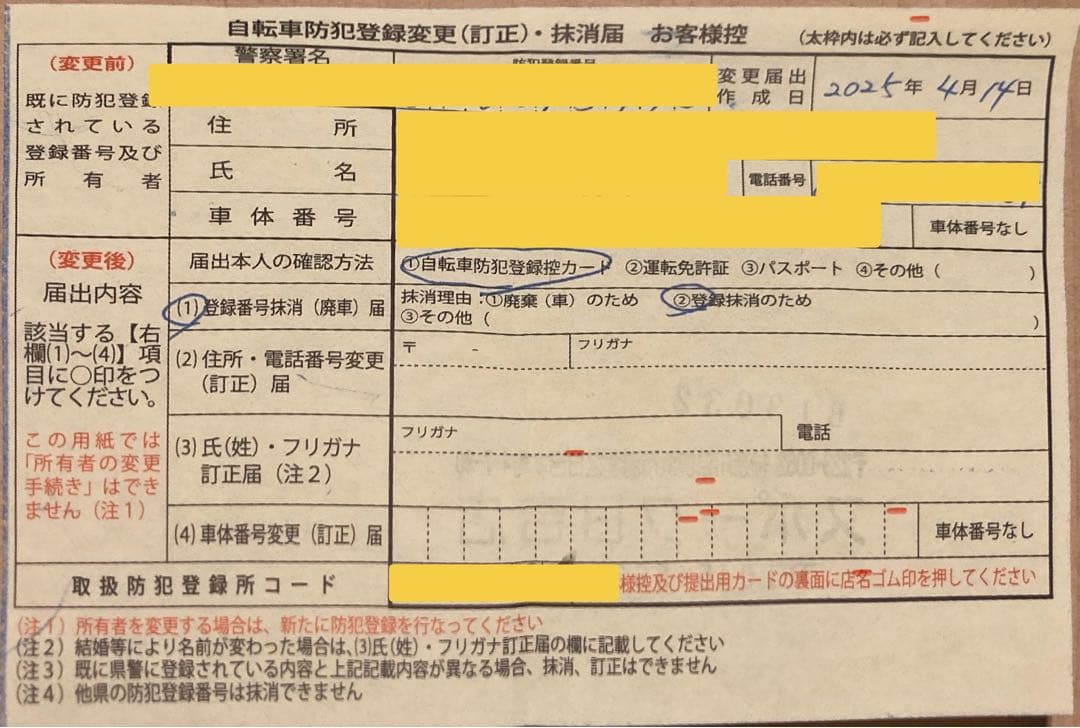 自転車防犯登録変更(訂正)・抹消届 お客様控 (太枠内は必ず記入してください)
(変更前)
既に防犯登録
されている
登録番号及び
所有者
警察署名
防犯登録番号
変更届出
作成日
2025年 4月 14日
住所
氏名
電話番号
車体番号
車体番号なし
(変更後)
届出内容
該当する【右
欄(1)～(4)】項
目に○印をつ
けてください。
この用紙では
「所有者の変更
手続き」はでき
ません(注1)
届出本人の確認方法
①自転車防犯登録控カード ②運転免許証 ③パスポート ④その他( )
(1)登録番号抹消(廃車)届
抹消理由:①廃棄(車)のため ②登録抹消のため
③その他( )
(2)住所・電話番号変更
(訂正)届
〒 -
フリガナ
(3)氏(姓)・フリガナ
訂正届(注2)
フリガナ
電話
(4)車体番号変更(訂正)届
車体番号なし
取扱防犯登録所コード
様控及び提出用カードの裏面に店名ゴム印を押してください
(注1)所有者を変更する場合は、新たに防犯登録を行なってください
(注2)結婚等により名前が変わった場合は、(3)氏(姓)・フリガナ訂正届の欄に記載してください
(注3)既に県警に登録されている内容と上記記載内容が異なる場合、抹消、訂正はできません
(注4)他県の防犯登録番号は抹消できません